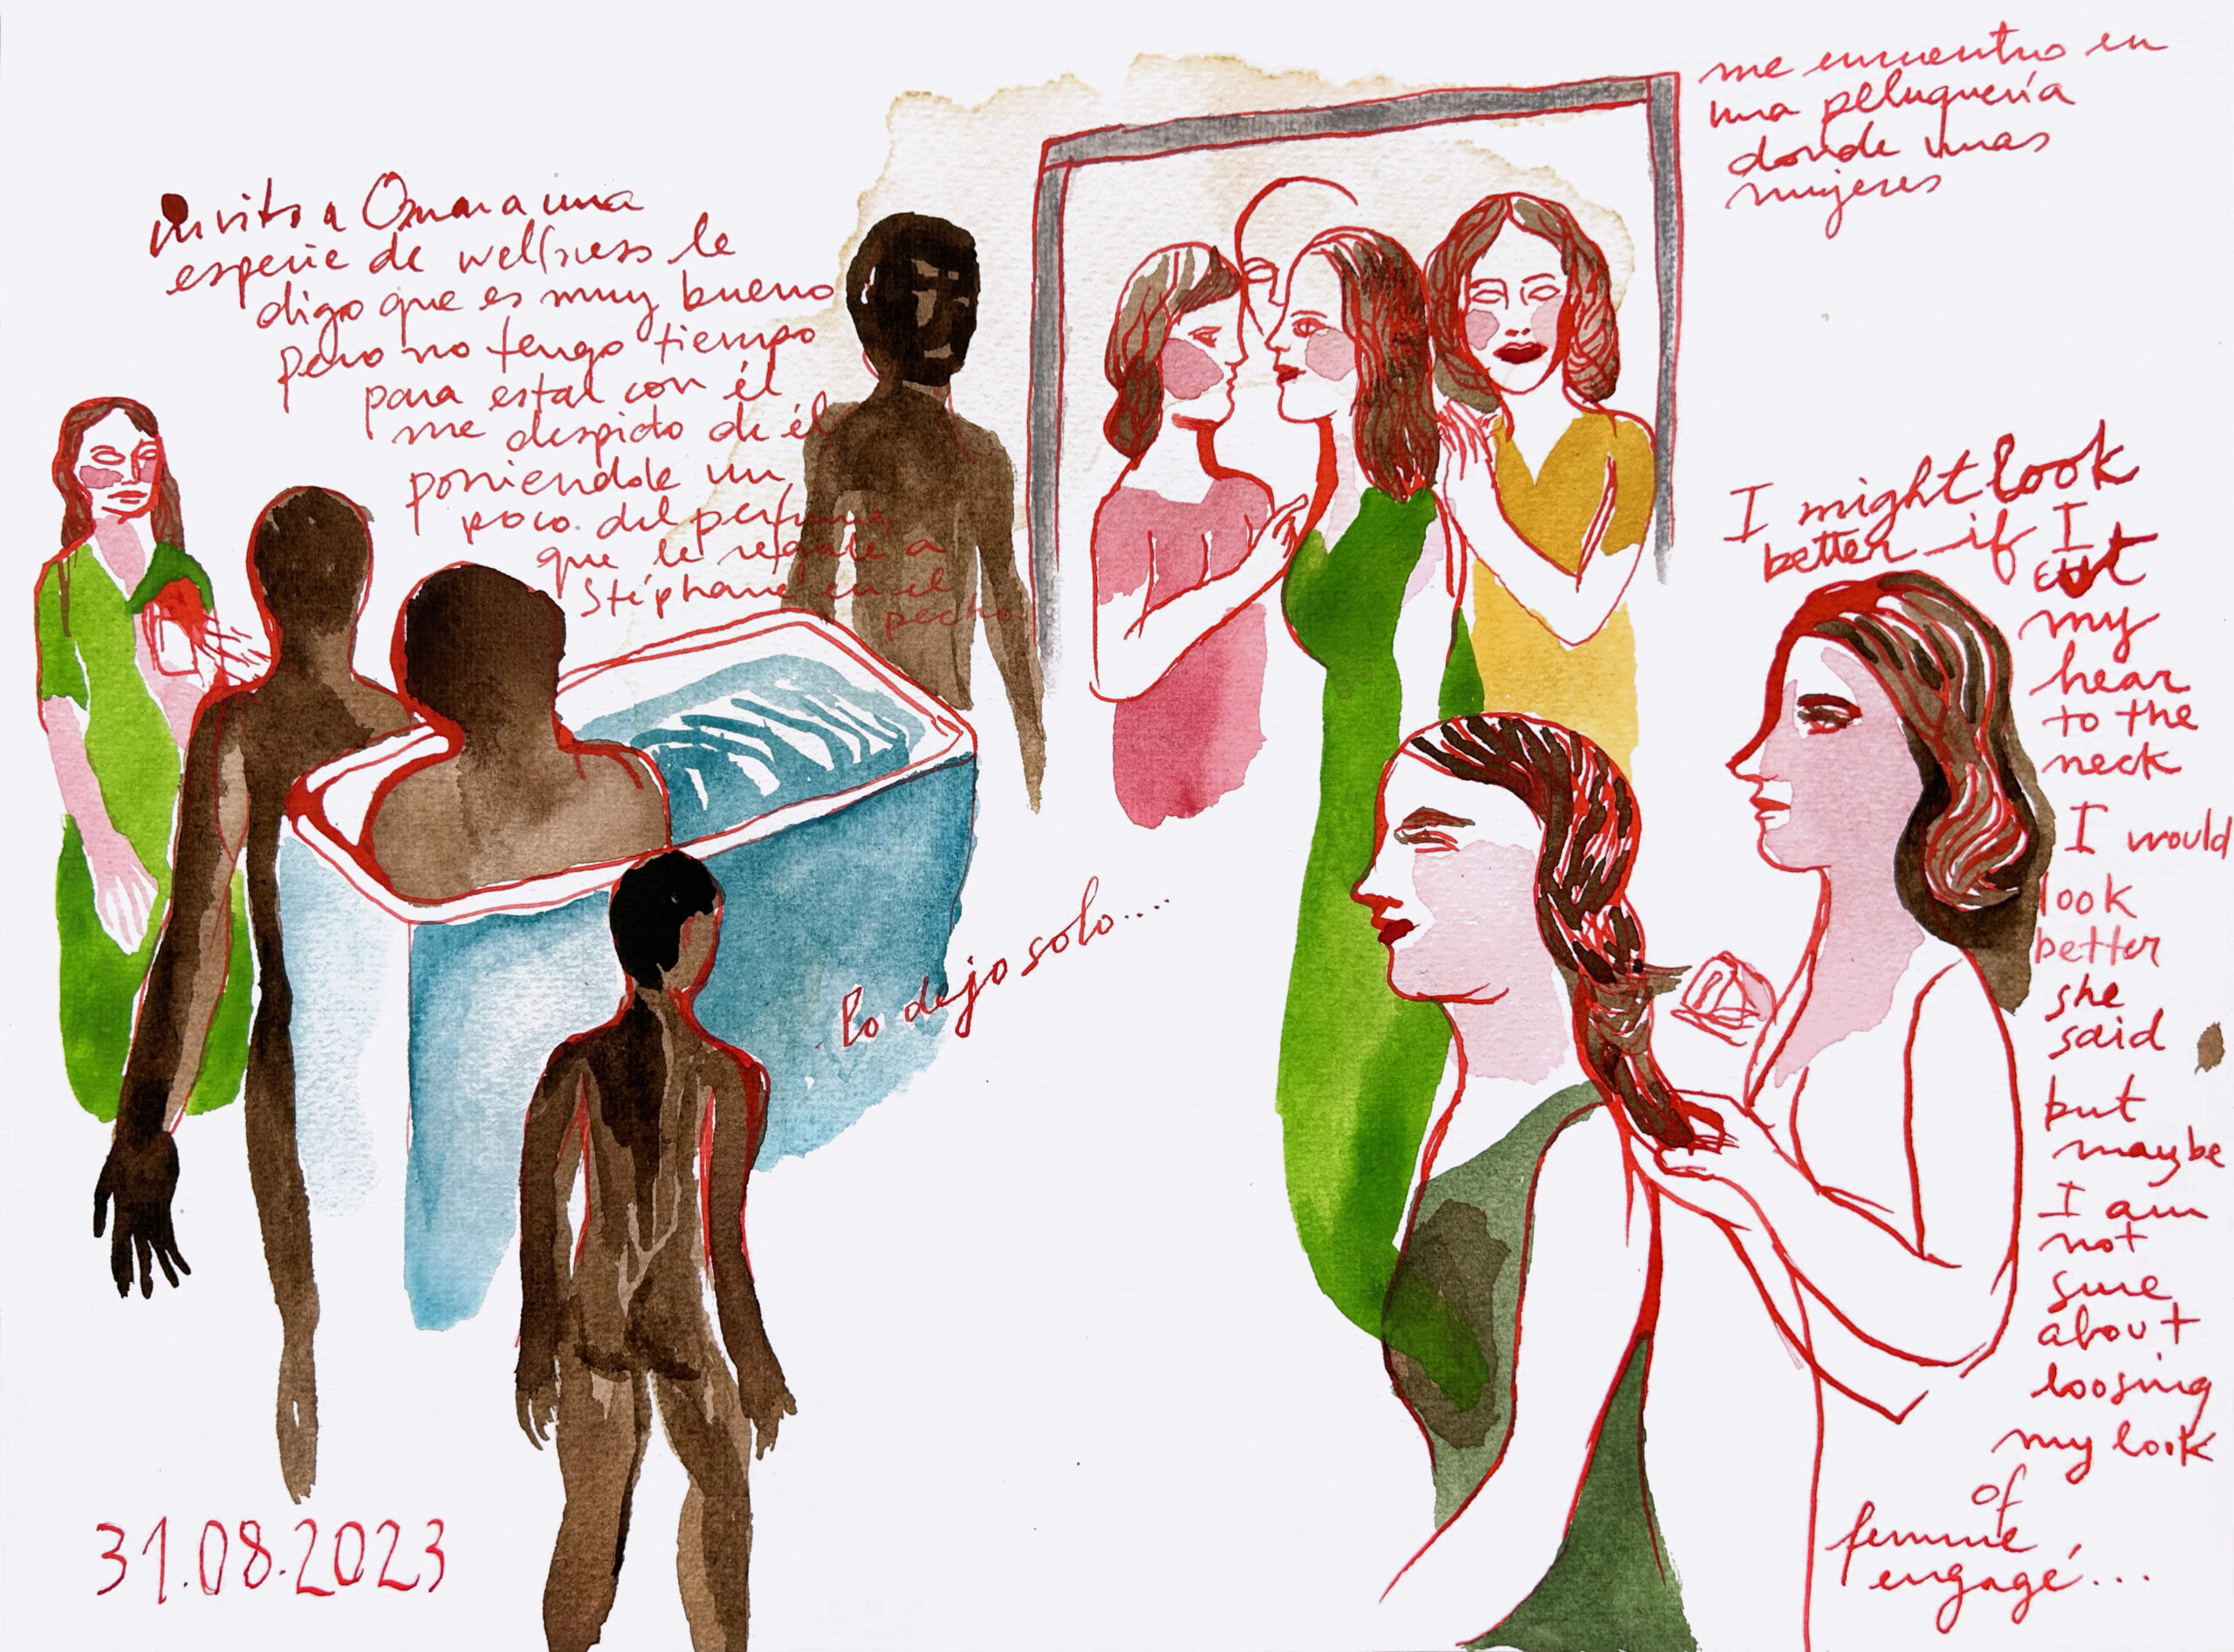 invito a Omar a una
especie de wellness le
digo que es muy bueno
pero no tengo tiempo
para estar con él
me despido de él
poniendole un
poco del perfume,
que le regalé a
Stéphane en el
pecho.
lo dejo solo....
31.08.2023
me encuentro en
una peluquería
donde unas
mujeres
I might look
better if I
cut
my
hear
to the
neck
I would
look
better
she
said
but
maybe
I am
not
sure
about
loosing
my look
of
femme
engagé...